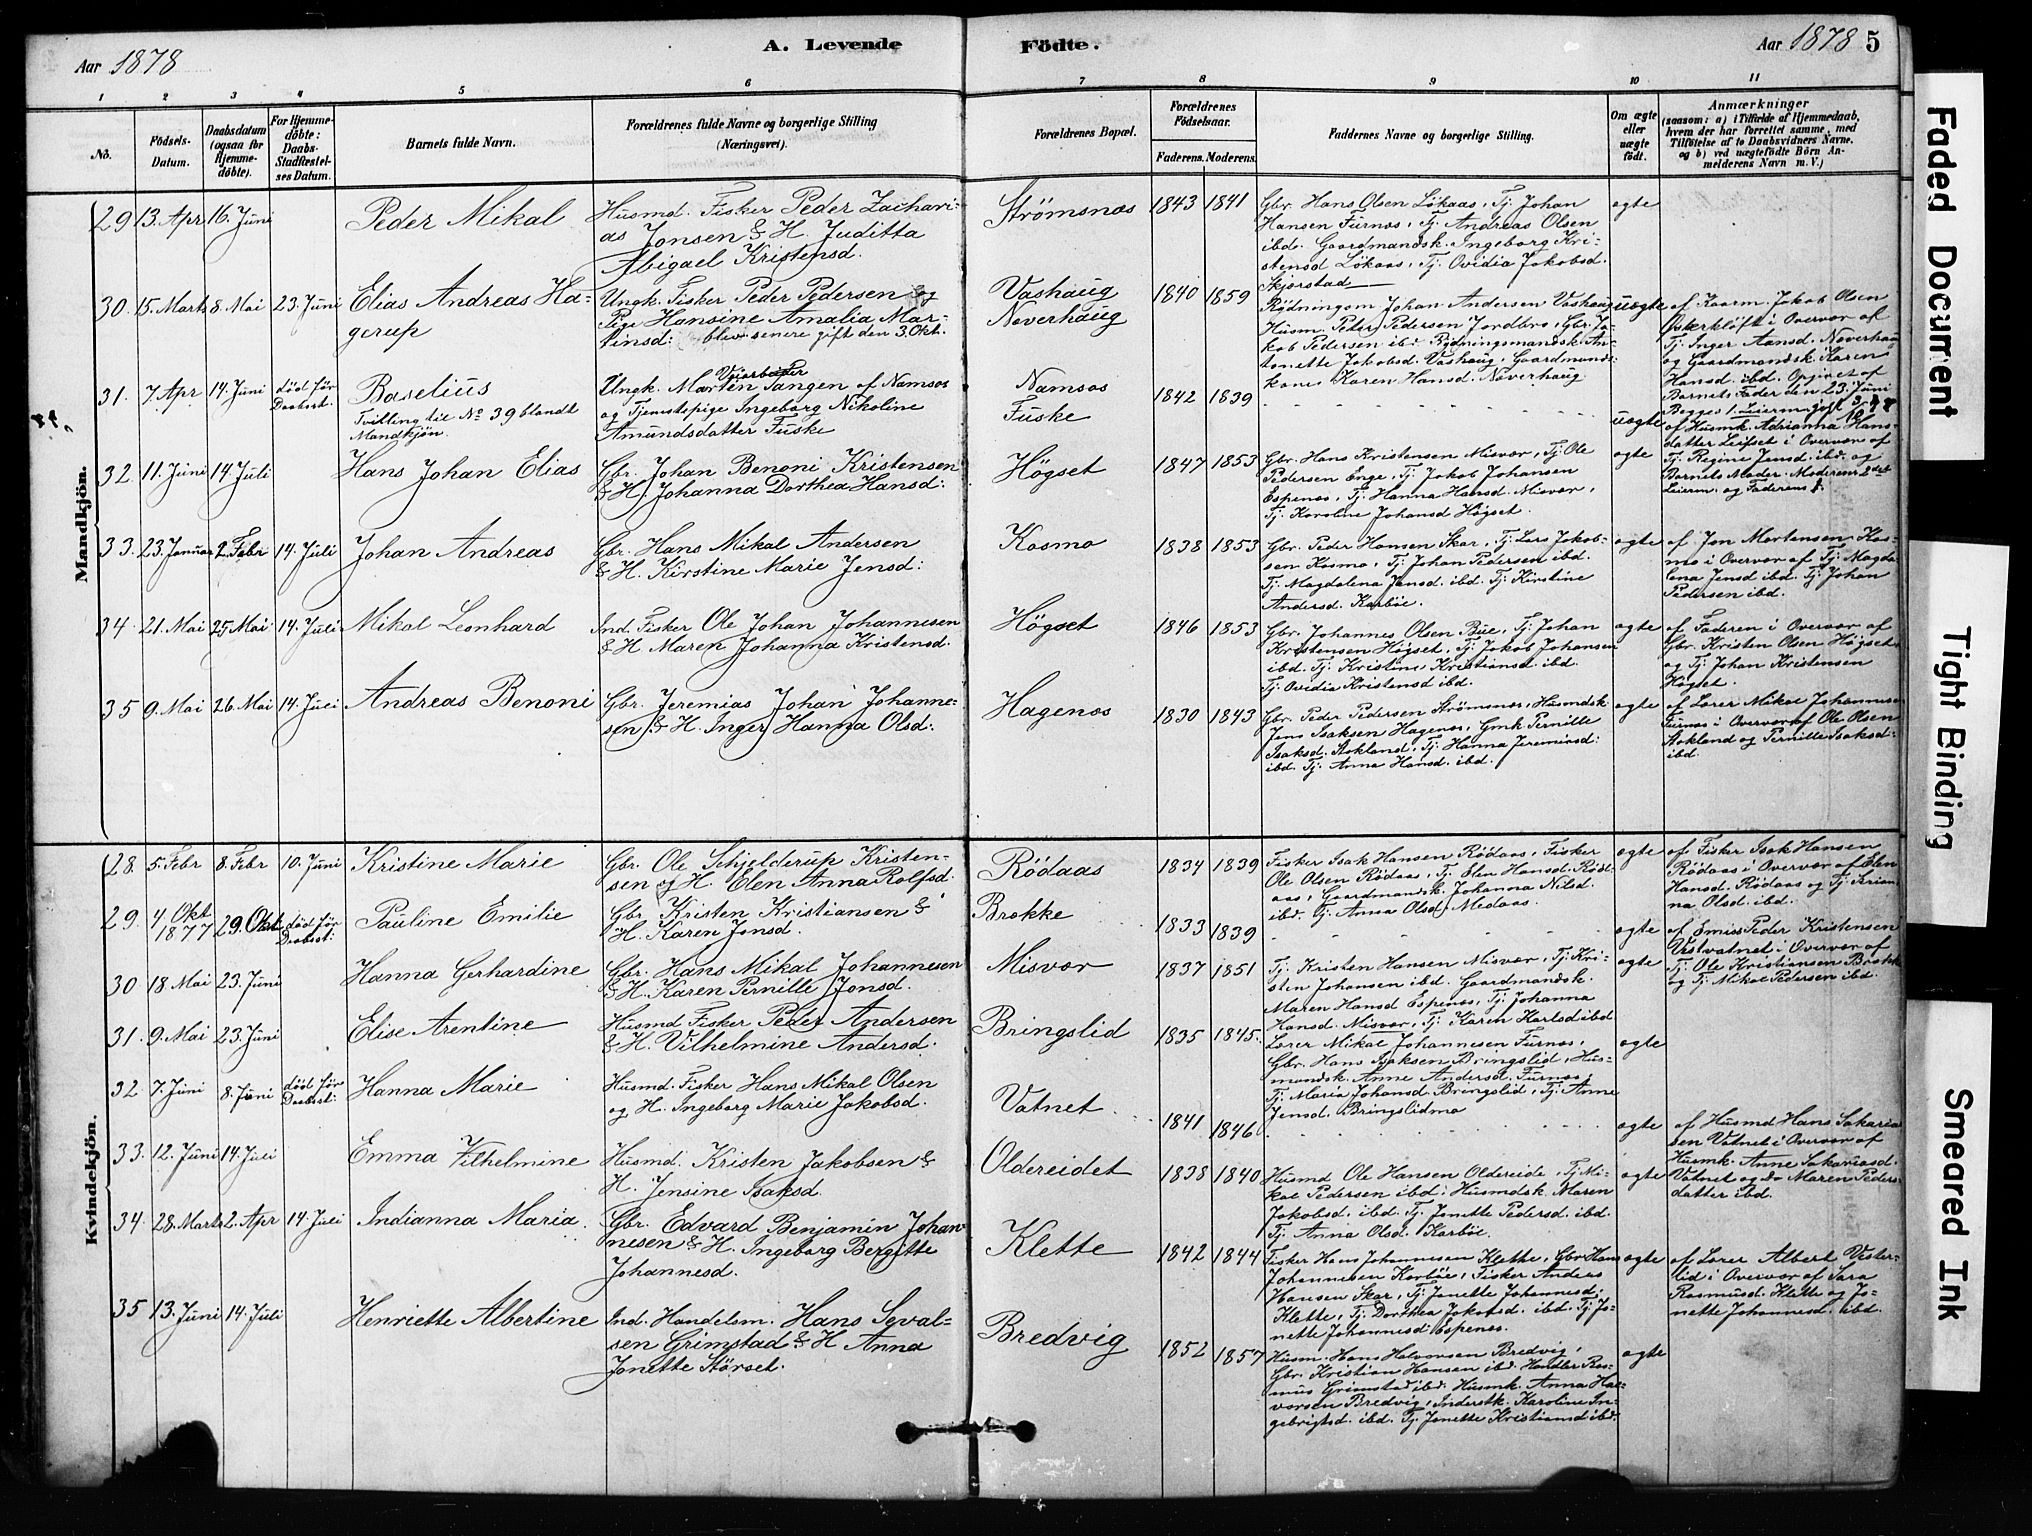 Aar 1878
A. Levende
Födte.
Aar 1878
5
1 2 3 4 5 6 7 8 9 10 11
No.
Födsels-
Datum.
Daabsdatum
(ogsaa for
Hjemme-
döbte).
For Hjemme-
döbte:
Daabs-
Stadfæstel-
ses Datum.
Barnets fulde Navn.
Forældrenes fulde Navne og borgerlige Stilling
(Næringsvei).
Forældrenes Bopæl.
Forældrenes
Födselsaar.
Faderens. Moderens.
Faddernes Navne og borgerlige Stilling.
Om ægte
eller
uægte
födt.
Anmærkninger
(saasom: a) i Tilfælde af Hjemmedaab,
hvem der har forrettet samme, med
Tilföielse af to Daabsvidners Navne,
og b) ved uægtefödte Börn An-
melderens Navn m. V.)
Mandkjön.
29 13. Apr 16. Juni
Peder Mikal
Husmd. Fisker Peder Zachari-
as Jonsen & H. Juditta
Abigael Kristensd.
Strømsnæs
1843 1841
Gbr. Hans Olsen Løkaas, Tj. Johan
Hansen Furnæs, Tj. Andreas Olsen
ibd. Gaardmandsk. Ingeborg Kri-
stensd Løkaas, Tj. Ovidia Jakobsd.
Skjørstad
ægte
30. 15. Marts 8. Mai 23. Juni
Elias Andreas Ha-
gerup
Ungk. Fisker Peder Pedersen og
Pige Hansine Amalia Mar-
tinsd: blev senere gift den 3. Okt.
Vashaug
Noverhaug
1840 1859
Rydningsm Johan Andersen Vashaug
Husm. Peter Pedersen Jordbro, Gbr. Ja-
kob Pedersen ibd. Rydningsmandsk. An-
tonette Jakobsd. Vashaug, Gaardmands-
kone Karen Hansd. Noverhaug.
uægte
af Kaarm. Jakob Olsen
Østerkløft i Overvær af
Tj. Inger Aansd. Noverhaug
og Gaardmandsk Karen
Hansd. ibd. Opgivet af
Barnets Fader den 23. Juni
Begges 1. Leierm.
31. 7. Apr 14. Juni død før
Daabsst:
Baselius
Tvilling til No 39 blandt
Mandkjøn.
Veiarbeider
Ungk. Marten Tangen af Namsos
og Tjenestepige Ingeborg Nikoline
Amundsdatter Fuske
Namsos
Fuske
1842 1839
uægte
af Husmk. Adrianna Hans-
datter Leifset i Overvær af
Tj. Regine Jensd. ibd. og
Barnets Moder. Moderens 2det
Leierm. og Faderens
32 11. Juni 14. Juli
Hans Johan Elias
Gbr. Johan Benoni Kristensen
& H. Johanna Dorthea Hansd:
Högset
1847 1853
Gbr. Hans Kristensen Misvær, Tj. Ole
Pedersen Enge, Tj. Jakob Johansen
Espenæs, Tj. Hanna Hansd. Misvær,
Tj. Karoline Johansd Högset.
ægte
33. 23. Januar 2. Febr 14. Juli
Johan Andreas
Gbr. Hans Mikal Andersen
& H. Kirstine Marie Jensd:
Kosmo
1838 1853
Gbr. Peder Hansen Skar, Tj. Lars Jakob-
sen Kosmo, Tj. Johan Pedersen ibd.
Tj. Magdalena Jensd. ibd. Tj. Kirstine
Andersd. Karbøe.
ægte
af Jon Mortensen Kos-
mo i Overvær af Tj. Magda-
lena Jensd ibd. Tj. Johan
Pedersen ibd.
34 21. Mai 25 Mai 14. Juli
Mikal Leonhard
Ind. Fisker Ole Johan Johannesen
& H. Maren Johanna Kristensd.
Högset
1846 1853
Gbr. Johannes Olsen Bue, Tj. Johan
Kristensen Högset, Tj. Jakob Johansen
ibd. Tj. Kristine Kristiansd. ibd.
Tj. Ovidia Kristensd ibd.
ægte
af Faderen i Overvær af
Gbr. Kristen Olsen Högset
og Tj. Johan Kristensen
Högset.
35 9. Mai 26. Mai 14. Juli
Andreas Benoni
Gbr. Jeremias Johan Johanne-
sen & H. Inger Hanna Olsd.
Hagenæs
1830 1843
Gbr. Peder Pedersen Strømsnæs, Husmdsk
Jens Isaksen Hagenæs, Gmk. Pernille
Isaksd. Stokland, Tj. Hanna Jeremiasd:
ibd. Tj. Anna Hansd. ibd.
ægte
af Lærer Mikal Johannesen
Furnæs i Overvær af Ole Olsen
Stokland og Pernille Isaksd:
ibd.
Kvindekjön.
28. 5. Febr 8. Febr 10. Juni
Kristine Marie
Gbr. Ole Schjelderup Kristen-
sen og H. Elen Anna Rolfsd.
Rödaas
1834 1839
Fisker Isak Hansen Rødaas, Fisker
Ole Olsen Rødaas, Tj. Elen Hansd. Rød-
aas, Gaardmandsk. Johanna Nilsd.
ibd. Tj. Anna Olsd. Medaas.
ægte
af Fisker Isak Hansen
Rødaas i Overvær af Elen
Hansd. Rødaas og Tj. Serian-
na Olsd. ibd.
29. 4. Okt
1877 29. Okt død før
Daabsst:
Pauline Emilie
Gbr Kristen Kristiansen &
H. Karen Jonsd.
Brække
1833 1839
ægte
af Emiss Peder Kristensen
Vestvatnet i Overvær af
Tj. Ole Kristiansen Brække
og Tj. Mikal Pedersen ibd.
30 18. Mai 23. Juni
Hanna Gerhardine
Gbr. Hans Mikal Johannesen
& H. Karen Pernille Jonsd.
Misvær
1837 1851
Tj. Kristen Hansen Misvær, Tj. Kri-
stin Johansen ibd. Gaardmandsk.
Maren Hansd Espenæs, Tj. Johanna
Hansd. Misvær, Tj. Karen Karlsd ibd
ægte
31. 9. Mai 23. Juni
Elise Arentine
Husmd Fisker Peder Andersen
& H. Vilhelmine Andersd.
Bringslid
1835 1845.
Lærer Mikal Johannesen Furnæs,
Gbr. Hans Isaksen Bringslid, Hus-
mandsk. Anne Andersd. Furnæs,
Tj. Maria Johansd. Bringslid, Tj. Anne
Jensd. Bringslidmo
ægte
32 7. Juni 8. Juni død før
Daabsst:
Hanna Marie
Husmd. Fisker Hans Mikal Olsen
og H. Ingeborg Marie Jakobsd.
Vatnet
1841 1846
ægte
af Husmd Hans Sakaria-
sen Vatnet i Overvær af
Husmk. Anne Sakariasd.
Vatnet og do Maren Peders-
datter ibd.
33. 12. Juni 14. Juli
Emma Vilhelmine
Husmd. Kristen Jakobsen &
H. Jensine Isaksd.
Oldereidet
1838 1840
Husmd Ole Hansen Oldereide, Tj. Mi-
kal Pedersen ibd. Husmdsk Maren
Jakobsd. ibd. Tj. Jonette Pedersd. ibd.
Tj. Anna Olsd. Karbøe.
ægte
34. 28. Marts 2. Apr 14. Juli
Indianna Maria.
Gbr. Edvard Benjamin Johan-
nesen & H. Ingeborg Bergitte
Johannesd.
Klette
1842 1844
Fisker Hans Johannesen Klette, Gbr Hans
Johannesen Karbøe, Fisker Anders
Hansen Skar, Tj. Jonette Johannesd.
Klette, Tj. Dorthea Jakobsd. ibd. Tj. Jo-
nette Johannesd Espenæs.
ægte
af Lærer Albert Vester-
lid i Overvær af Sara
Rasmusd. Klette og Jo-
nette Johannesd. ibd.
35 13. Juni 14. Juli
Henriette Albertine
Ind. Handelsm. Hans Seval-
sen Grimstad & H Anna
Jonette Störset.
Bredvig
1852 1857
Husm. Hans Halvorsen Bredvig,
Gbr. Kristian Hansen ibd. Handler Ras-
mus Grimstad ibd. Husmk. Anna Hal-
vorsen Bredvig, Inderstk. Karoline In-
gebrigtsd. ibd. Tj. Jonette Kristiansd ibd.
ægte
Faded Document
Tight Binding
Smeared Ink